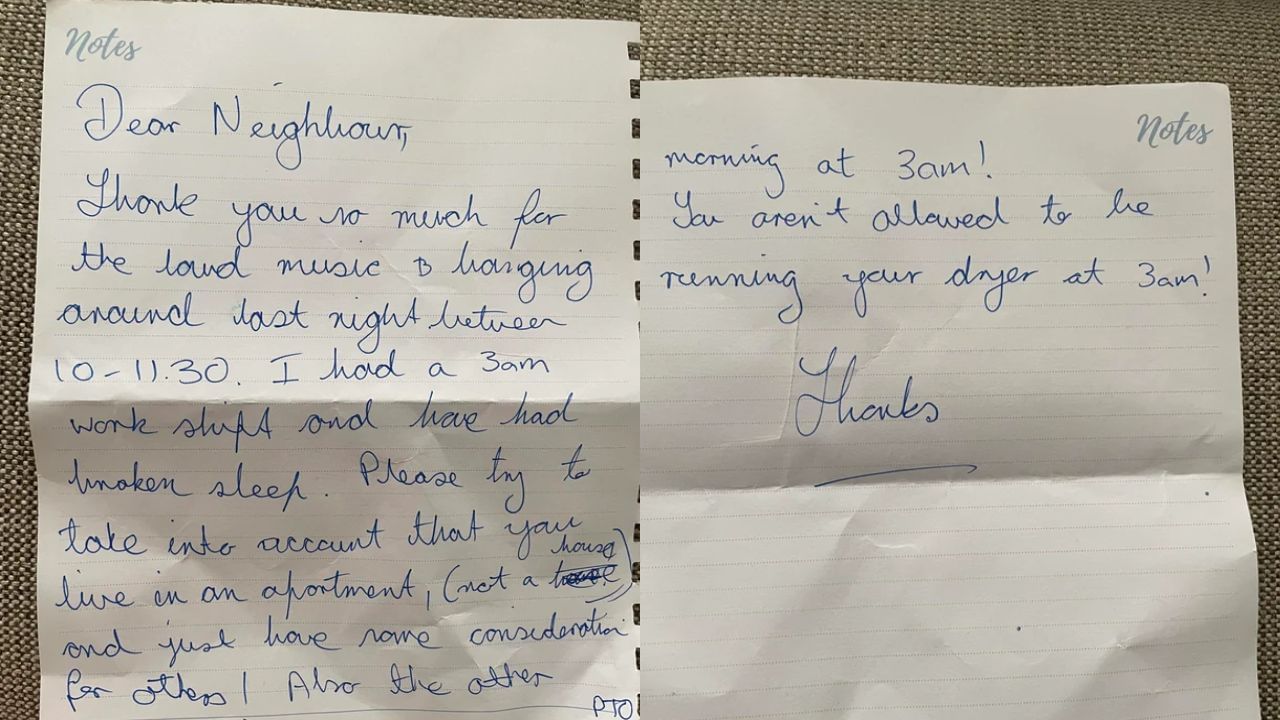 Notes
Dear Neighbour,
Thank you so much for
the loud music & banging
around last night between
10-11.30. I had a 3am
work shift and have had
broken sleep. Please try to
take into account that you
live in an apartment, (not a house)
and just have some consideration
for others! Also the other
PTO
Notes
morning at 3am!
You aren't allowed to be
running your dryer at 3am!
Thanks